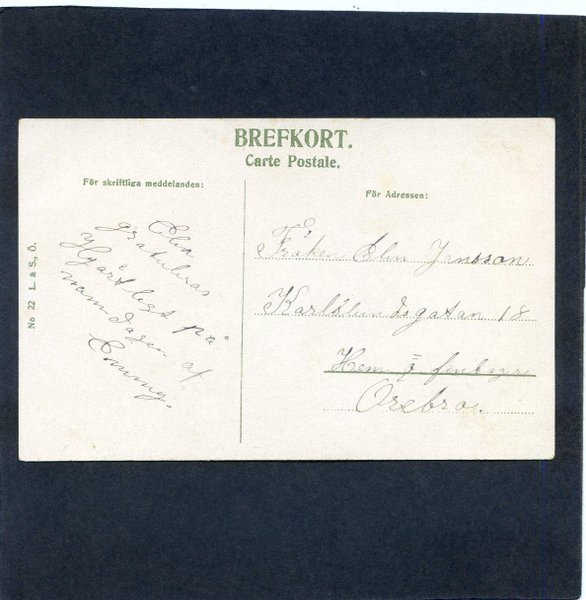 BREFKORT.
Carte Postale.
För skriftliga meddelanden:
För Adressen:
No 22 L. & S., Ö.
Elin
gratuleras
Hjärtligt på
namsdagen af
Emmy.
Fröken Elin Jonsson
Karlslundsgatan 18
Hem
Örebro.